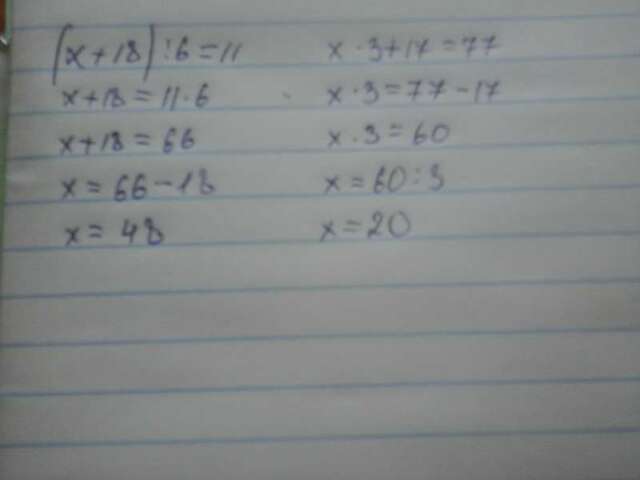 (x+18):6=11
x+18=11·6
x+18=66
x=66-18
x=48
x·3+17=77
x·3=77-17
x·3=60
x=60:3
x=20